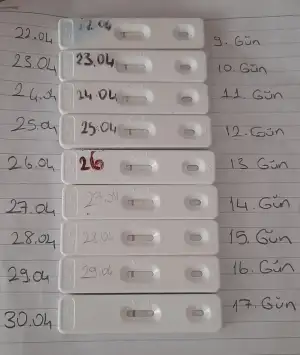 22.04 22.04 9. Gün
23.04 23.04 10. Gün
24.04 24.04 11. Gün
25.04 25.04 12. Gün
26.04 26 13. Gün
27.04 27.04 14. Gün
28.04 28.04 15. Gün
29.04 29.04 16. Gün
30.04 17. Gün